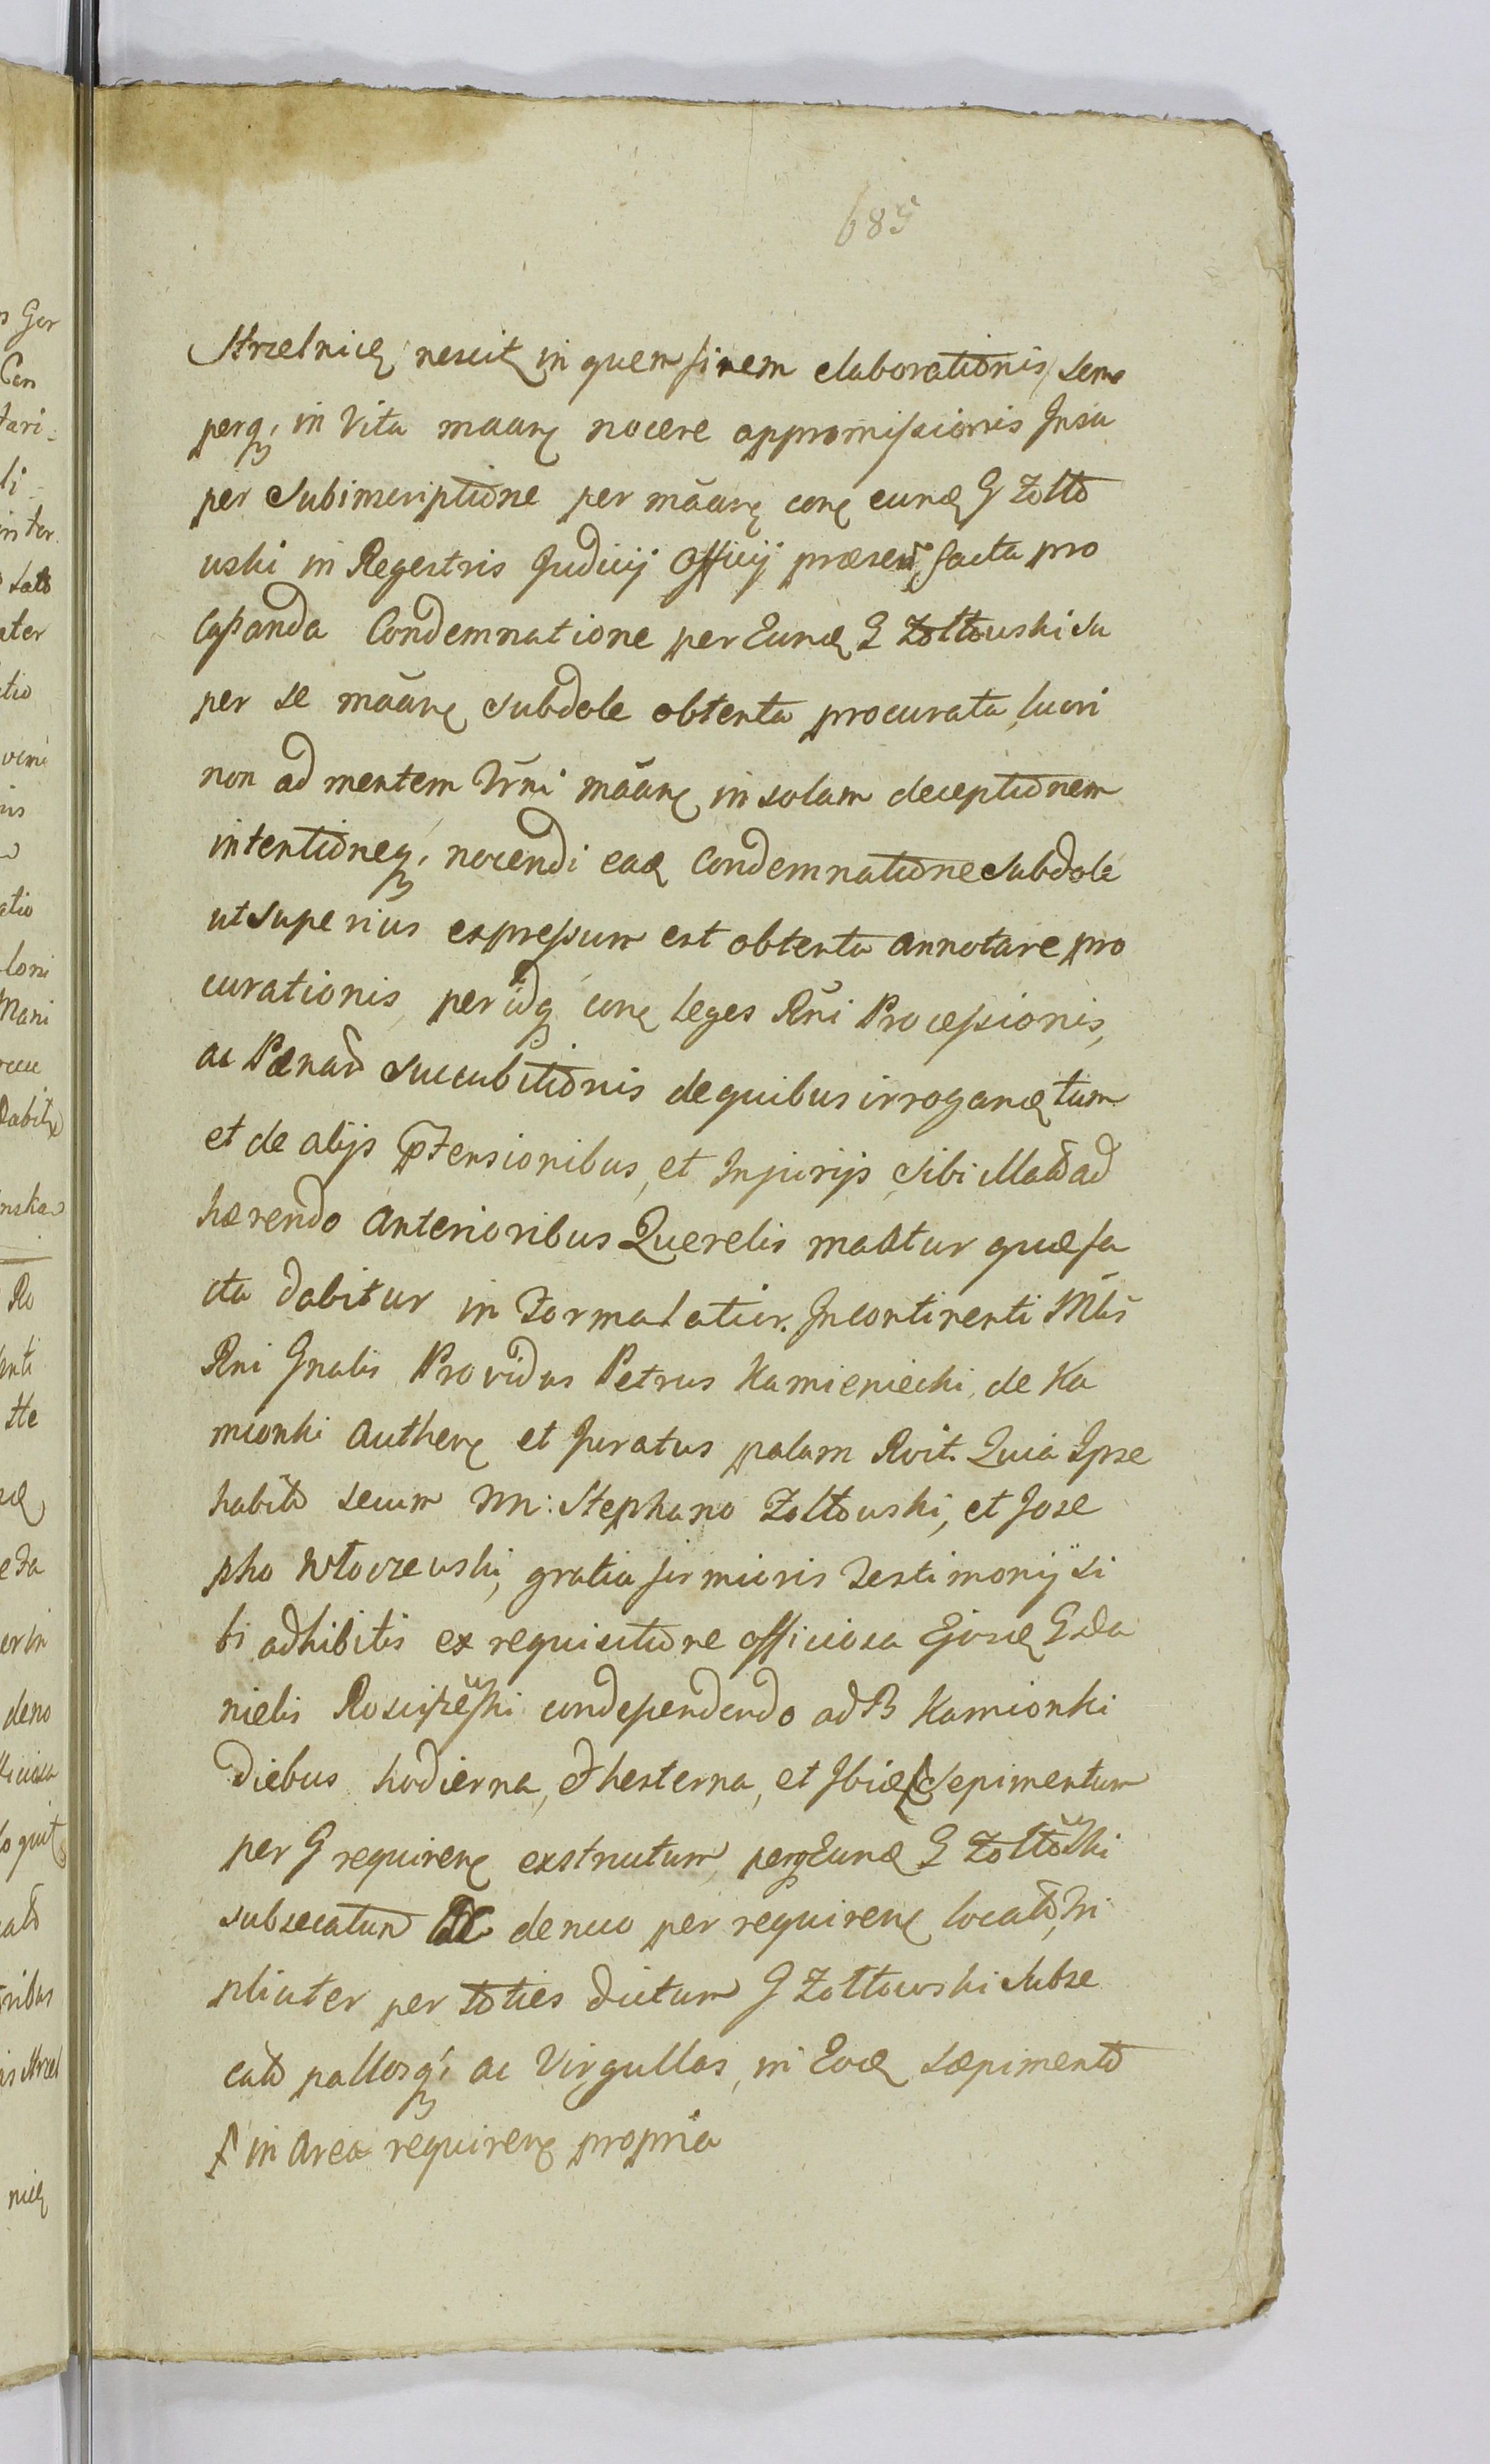 685
Strzelnicę nescit in quem finem elaborationis, sem
perq, in Vita maarę nocere appromissionis Insu
per Subinscriptione per māarę conę eundę G Zołto
wski in Regestris Judicij Officij præsen facta pro
Cassanda Condemnatione per Eundę G Zołtowski su
per se māarę subdole obtenta procurata, lucri
non ad mentem Irni māarę in solam deceptionem
intentioneq, nocendi eadę Condemnatione subdole
ut superius expressum est obtenta annotare pro
curationis, per idq conę leges Rni Processionis,
ac Pænarū succubitionis de quibus irrogandę tum
et de alijs ptensionibus, et Injurijs, sibi Illato ad
hærendo Anterioribus Querelis maatur quæ fa
cta dabitur in Forma latior. Incontinenti Mlis
Rni Gnalis Providus Petrus Kamieniecki, de Ka
mionki Autherę et Juratus palam Rvit. Quia Ipse
habito secum NN: Stephano Zołtowski, et Jose
pho Włoczewski, gratia firmioris Testimonij si
bi adhibitis ex requisitione officiosa Ejusdę G Da
nielis Roscisżewski condependendo ad B Kamionki
Diebus hodierna, et hesterna, et Ibidę Sepimentum
per G requirenę exstructum, perq Eundę G Zołtowski
subsecatum Ac denuo per requirenę locato, Tri
pliciter per toties dictum G Zołtowski Subse
cato pallosq, ac Virgullas, in Eodę sæpimento
in Area requirenę propria